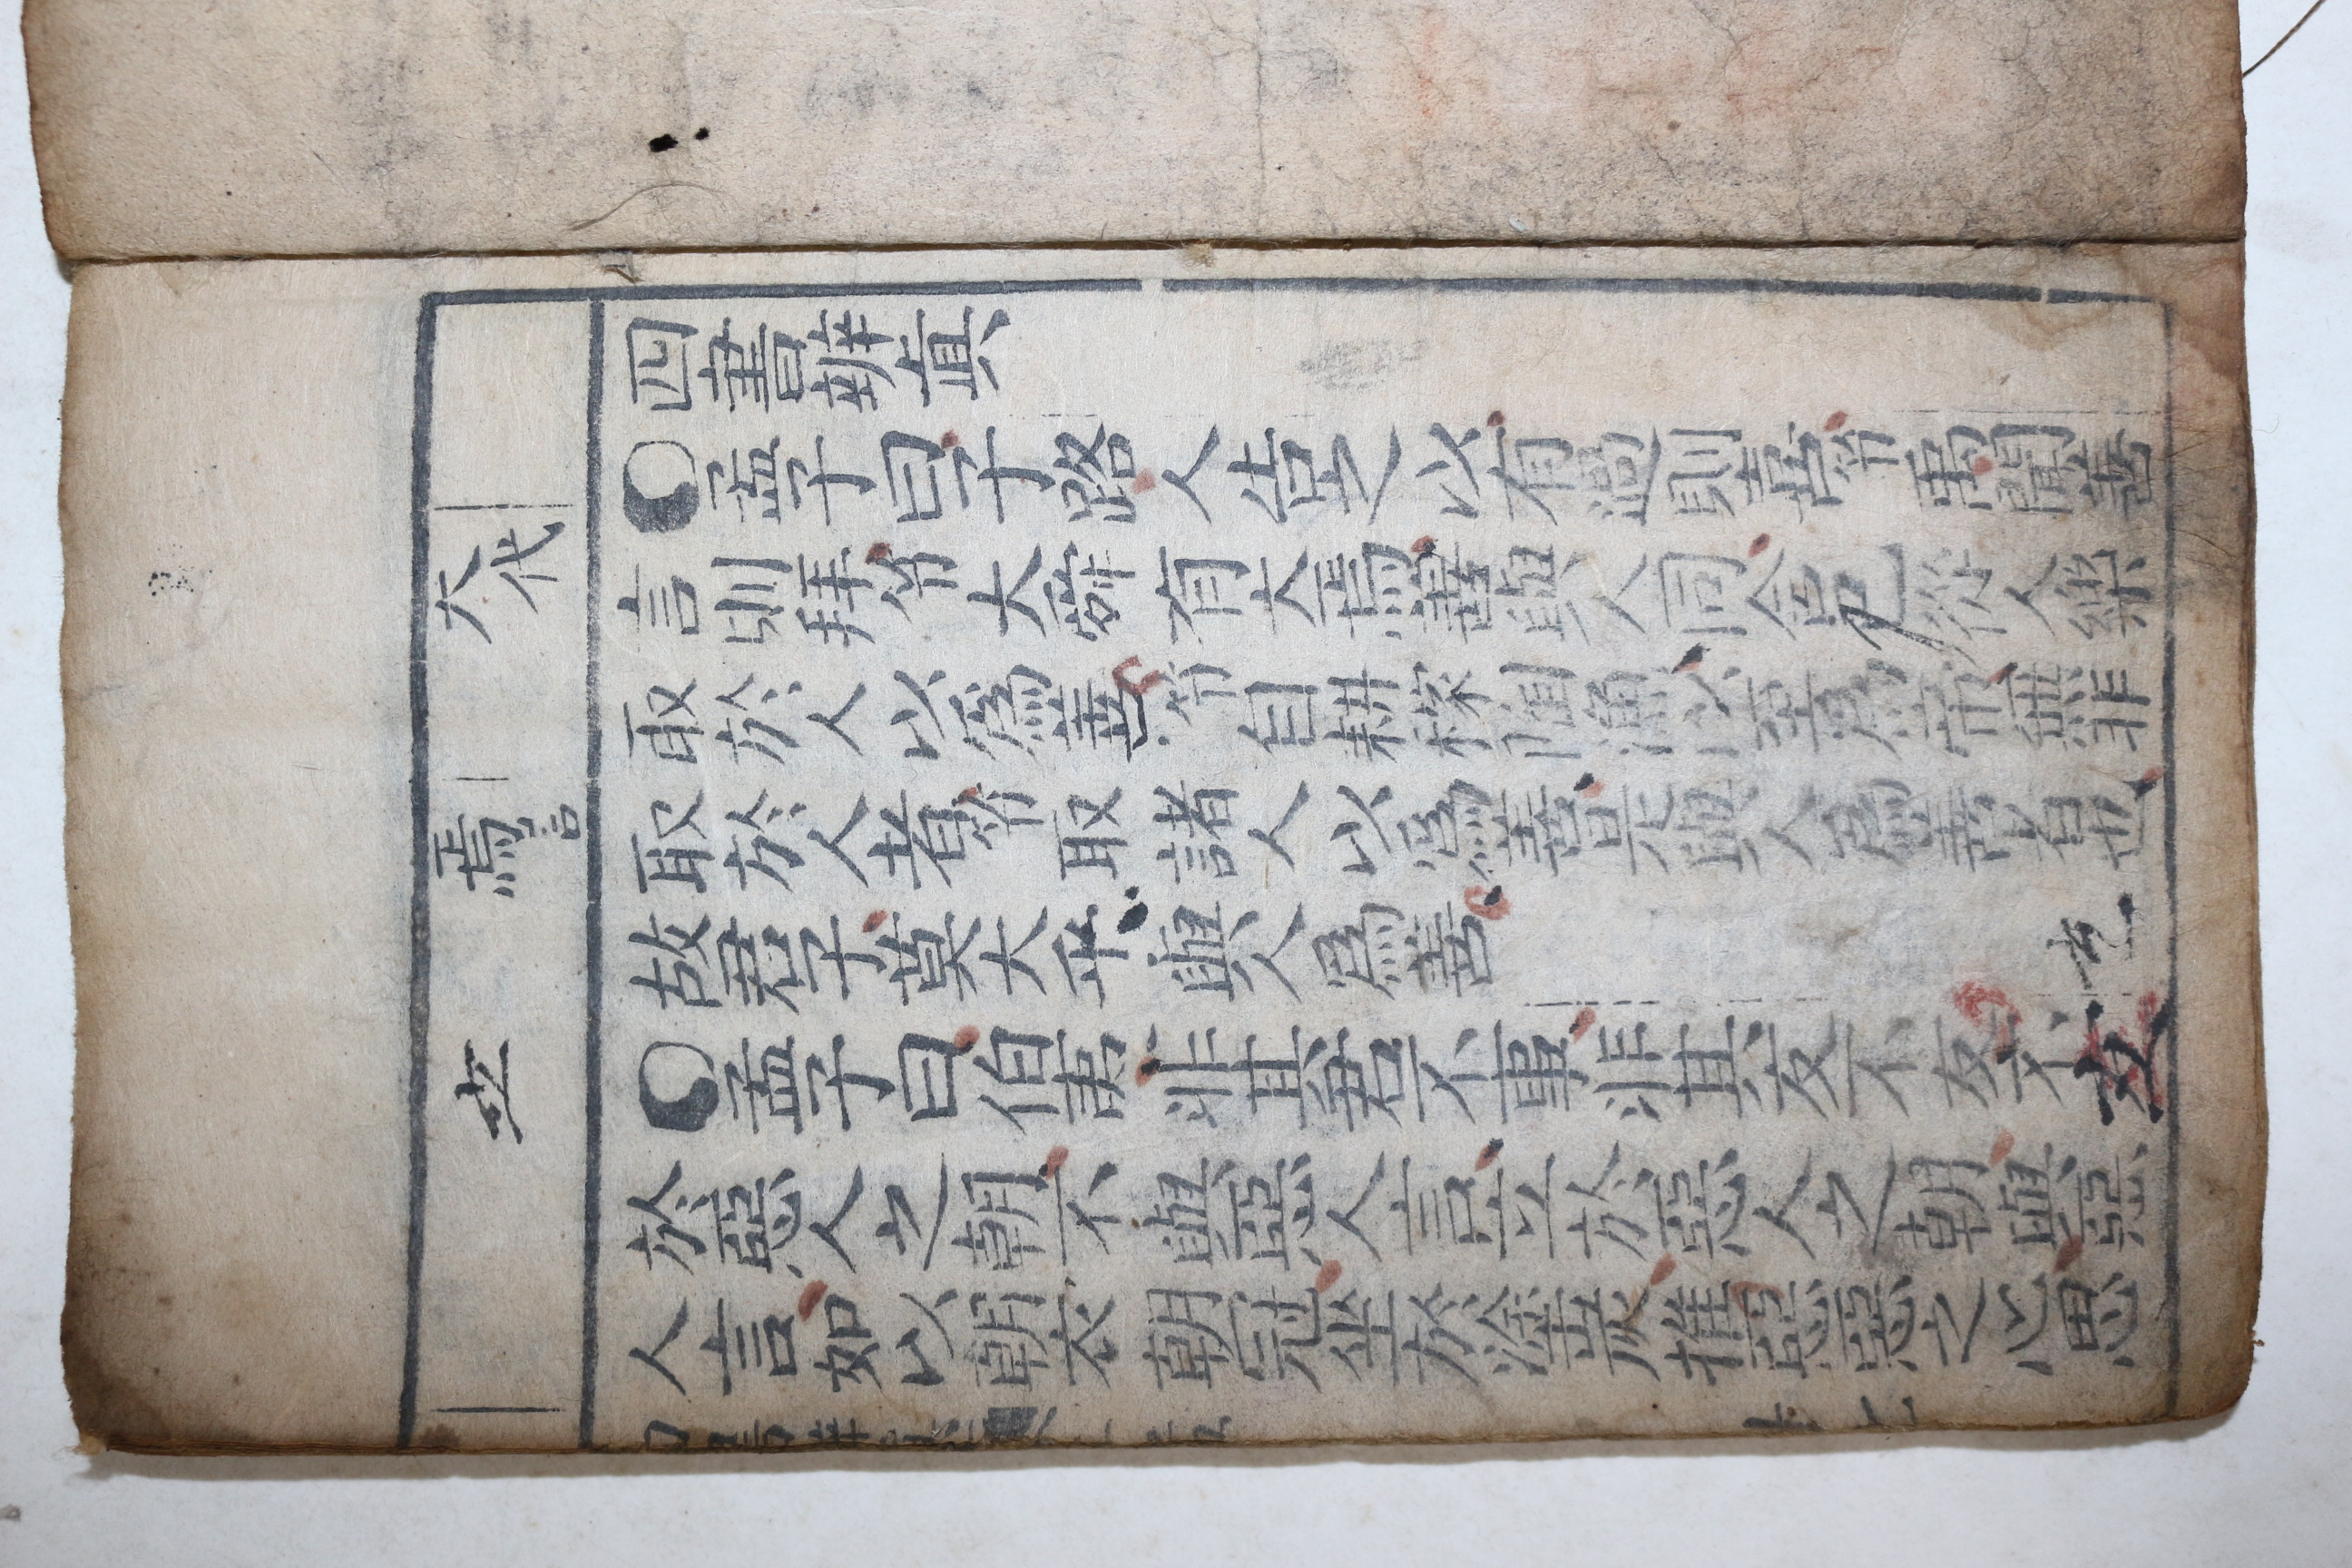 四書辨真
○孟子曰子路人告之以有過則喜节禹聞善
言則拜节大舜有大焉善與人同舍己從人樂
取於人以爲善节自耕稼陶漁以至爲帝無非
取於人者节取諸人以爲善是與人爲善者也
故君子莫大乎與人爲善
○孟子曰伯夷非其君不事非其友不友不立
於惡人之朝不與惡人言立於惡人之朝與惡
人言如以朝衣朝冠坐於塗炭推惡惡之心思
大代
焉言
立